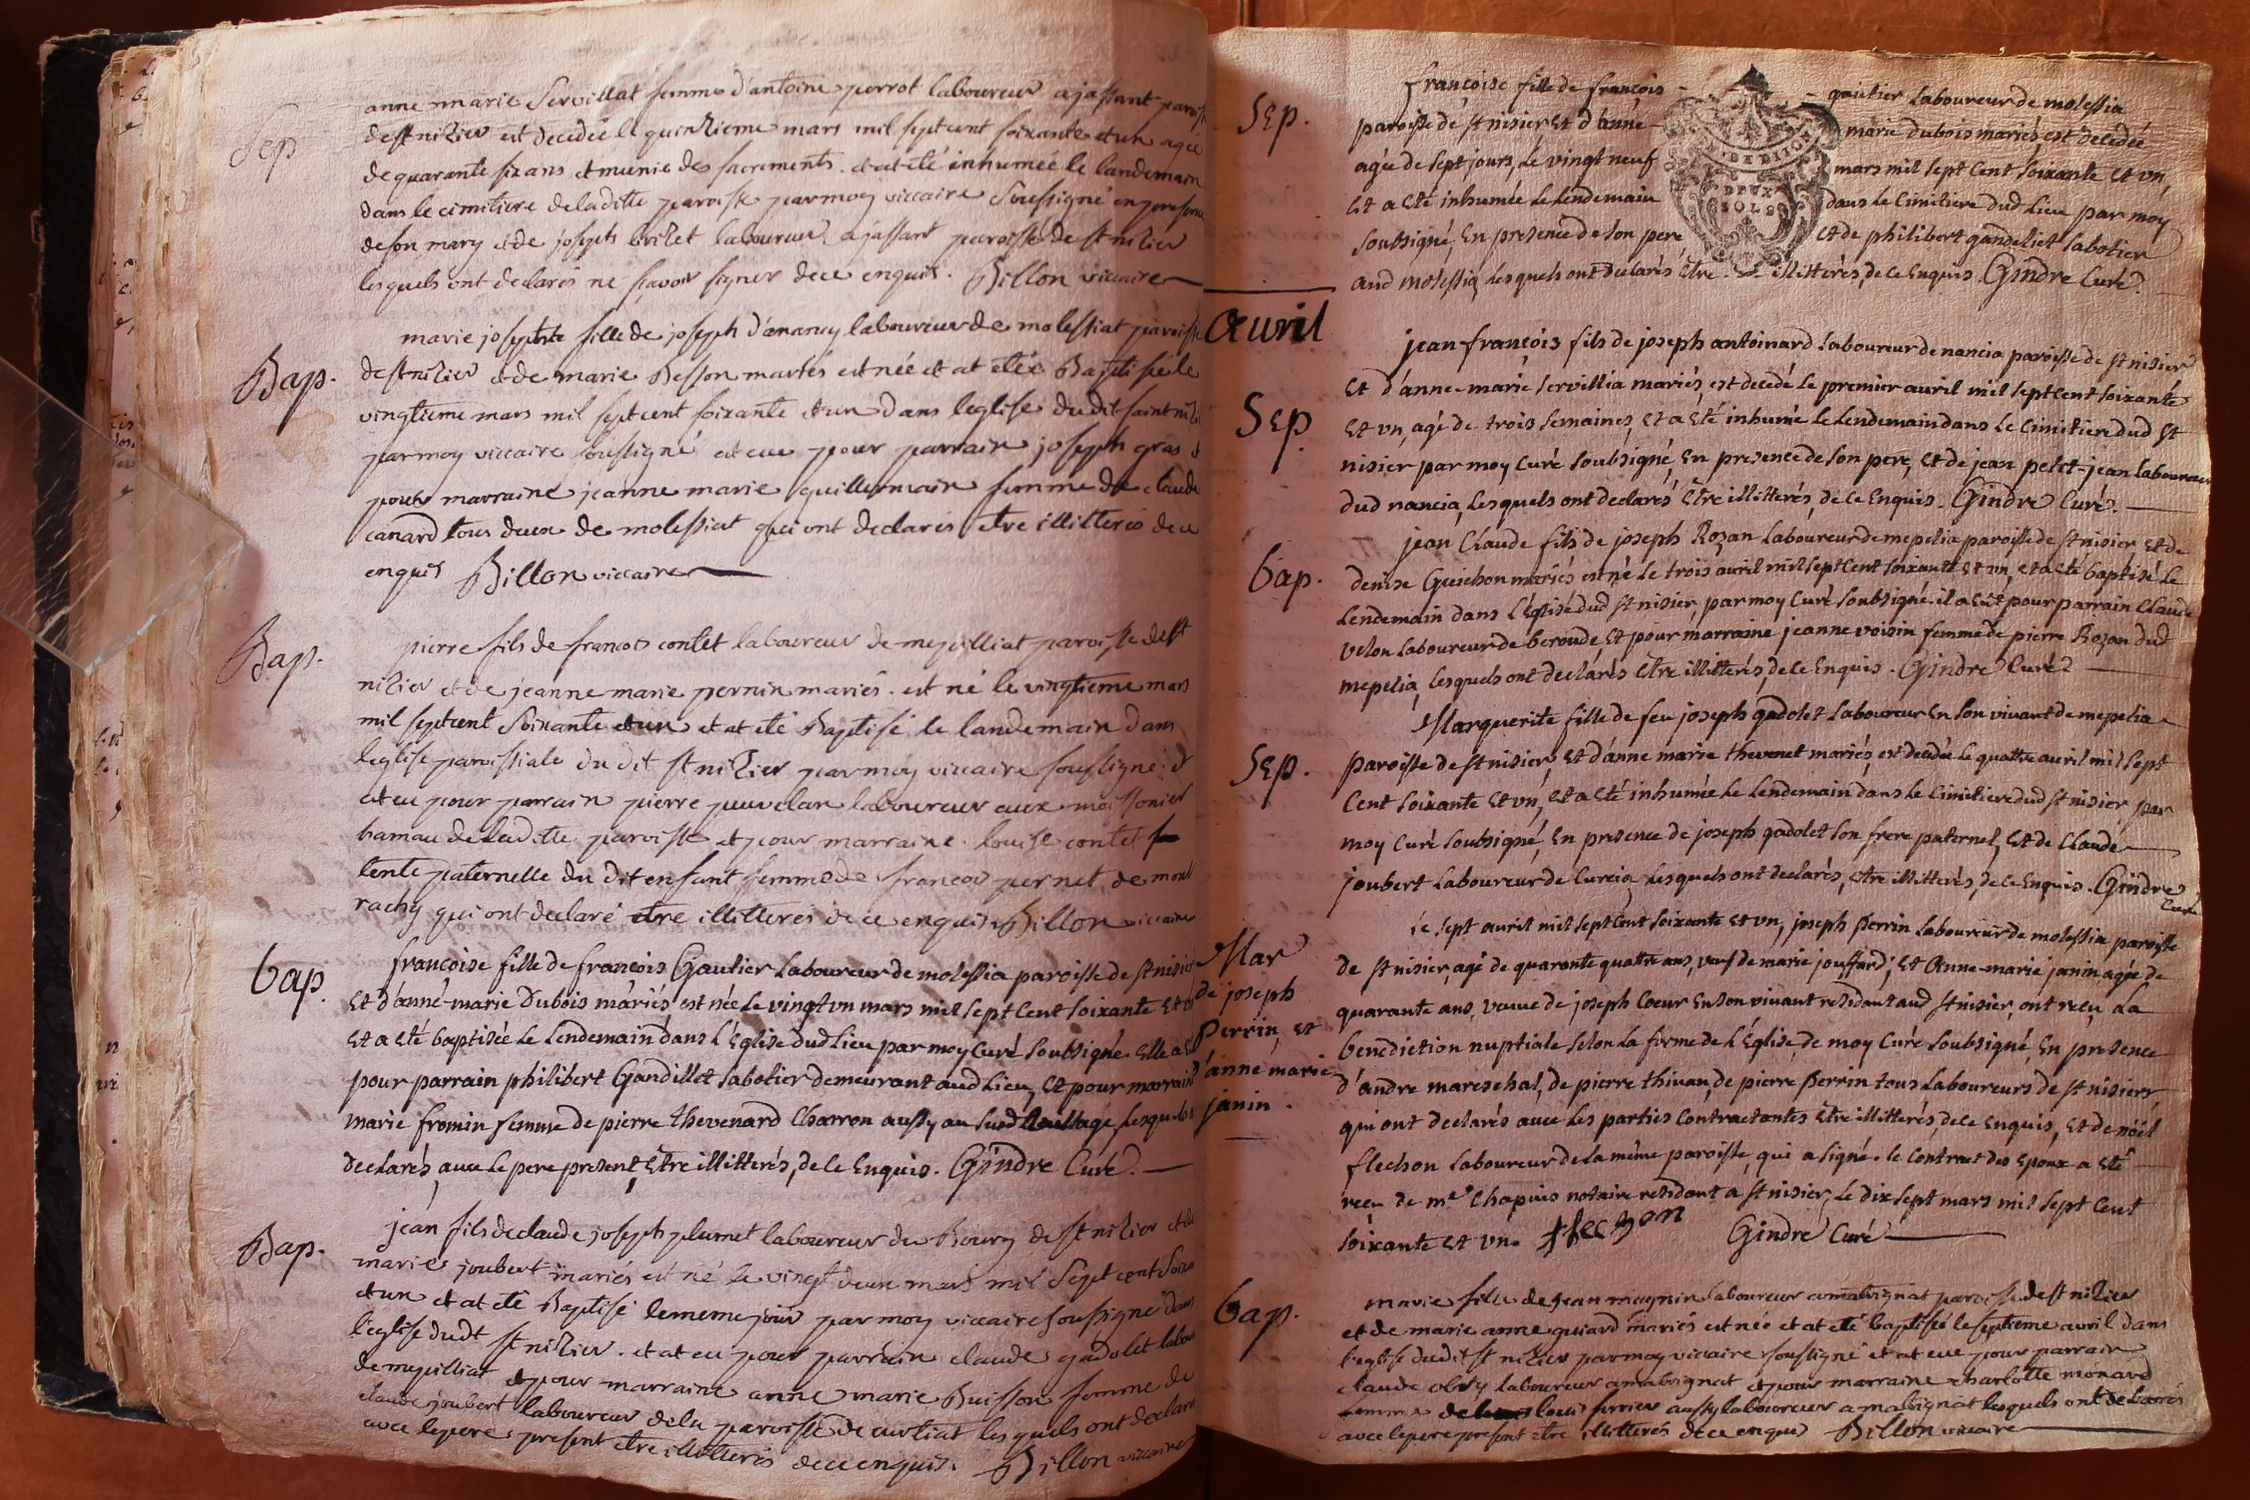 Sep
anne marie Servillat femme d'antoine perrot laboureur a jassant paroisse
de st nizier est decedée le quinzieme mars mil sept cent soixante et un agée
de quarante six ans et munie des sacrements. et at eté inhumée le landemain
dans le cimitiere de laditte paroisse par moy viccaire soussigné en presence
de son mary et de joseph laboureur a jassant paroisse de st nizier
lesquels ont declarés ne sçavoir signer de ce enquis. Billon viccaire
Bap.
marie josephte fille de joseph d'anancy laboureur de molessiat paroisse
de st nizier et de marie Besson mariés est née et at eté Baptisée le
vingtieme mars mil sept cent soixante et un dans l'eglise du dit saint nizi
par moy viccaire soussigné et eue pour parrain joseph gras et
pour marraine jeanne marie guillermain femme de claude
canard tous deux de molessiat qui ont declarés etre illitterés de ce
enquis Billon viccaire
Bap.
pierre fils de francois contet laboureur de mepilliat paroisse de st
nizier et de jeanne marie pernin mariés. est né le vingtieme mars
mil sept cent soixante et un et at eté Baptisé le landemain dans
l'eglise paroissiale du dit st nizier par moy viccaire soussigné. et
at eu pour parrain pierre puvelan laboureur aux moissonier
hamau de laditte paroisse et pour marraine louise contet
tente paternelle du dit enfant femme de francois pernet de mont
rachy qui ont declaré etre illitterés de ce enquis Billon viccaire
bap.
françoise fille de françois Gautier Laboureur de molessia paroisse de st nisier
Et d'anne-marie Dubois mariés est née Le vingt vn mars mil sept Cent soixante Et vn
Et a eté baptisée Le Lendemain dans L'Eglise dud Lieu par moy Curé soubsigné. Elle a Eu
pour parrain philibert Gandillet sabotier demeurant aud Lieu, Et pour marraine
marie fromin femme de pierre thevenard Charron aussy au susd Lesquels
declarés, avec Le pere present, Etre illitterés, de Ce Enquis. Gindre Curé.
Bap.
jean fils de claude joseph plumet laboureur du Bourg de st nizier et de
marie joubert mariés est né le vingt deux mars mil sept cent soixa
et un et at eté Baptisé le meme jour par moy viccaire soussigné dans
l'eglise dudt st nizier. et at eu pour parrain claude gadolet labou
de mepilliat et pour marraine anne marie Buisson femme de
claude joubert laboureur de la paroisse de curtiat les quels ont declaré
avec le pere present etre illitterés de ce enquis. Billon viccaire
Sep.
françoise fille de françois gautier Laboureur de molessia
paroisse de st nisier Et d'anne marie dubois mariés, est decedée
agée de sept jours, Le vingt neuf mars mil sept Cent soixante et vn,
Et a eté inhumée Le Lendemain dans Le Cimitiere dud Lieu par moy
soubsigné, En presence de son pere Et de philibert gandeliet sabotier
aud molessia, Lesquels ont declarés Etre illitterés, de Ce Enquis Gindre Curé.
DEUX
SOLS
Avril
Sep
jean françois fils de joseph antoinard Laboureur de nancia paroisse de st nisier
Et d'anne-marie servillia mariés, est decedé Le premier avril mil sept Cent soixante
Et vn, agé de trois semaines, Et a eté inhumé Le Lendemain dans Le Cimitiere dud st
nisier par moy Curé soubsigné, En presence de son pere, Et de jean petet-jean Laboureur
dud nancia, Lesquels ont declarés Etre illitterés, de Ce Enquis. Gindre Curé.
bap.
jean Claude fils de joseph Rozan Laboureur de mepelia paroisse de st nisier, Et de
denise Guichon mariés est né Le trois avril mil sept Cent soixante Et vn, Et a eté baptisé Le
Lendemain dans L'Eglise dud st nisier, par moy Curé soubsigné. il a Eut pour parrain Claude
velon Laboureur de beroude, Et pour marraine jeanne voisin femme de pierre Rozan dud
mepelia, Lesquels ont declarés Etre illitterés, de Ce Enquis. Gindre Curé.
Sep.
Marguerite fille de feu joseph gadolet Laboureur En son vivant de mepelia
paroisse de st nisier, Et d'anne marie thevenet mariés, est decedée Le quattre avril mil sept
Cent soixante Et vn, Et a eté inhumée Le Lendemain dans Le Cimitiere dud st nisier, par
moy Curé soubsigné, En presence de joseph gadolet son frere paternel, Et de Claude
joubert Laboureur de Curcia, Lesquels ont declarés, Etre illitterés, de Ce Enquis. Gindre
Curé
Mar
de joseph
Perrin, Et
d'anne marie
janin.
Le sept avril mil sept Cent soixante Et vn, joseph Perrin Laboureur de molessia paroisse
de st nisier, agé de quarante quattre ans, veuf de marie jouffard, Et Anne-marie janin agée de
quarante ans, veuve de joseph Coeur En son vivant residant aud st nisier, ont reçu La
benediction nuptiale selon La forme de L'Eglise, de moy Curé soubsigné, En presence
d'andre mareschal, de pierre thivan, de pierre Perrin tous Laboureurs de st nisier,
qui ont declarés avec Les parties Contractantes Etre illitterés, de Ce Enquis, Et de nöel
flechon Laboureur de La même paroisse, qui a signé. le Contract des Epoux a eté
reçu de me Chapuis notaire residant a st nisier, Le dix sept mars mil sept Cent
soixante Et vn. flechon Gindre Curé
bap.
marie fille de jean magnin laboureur a malvignat paroisse de st nizier
et de marie anne guiard mariés est née et at eté baptisée le septieme avril dans
l'eglise du dit st nizier par moy viccaire soussigné et at eue pour parrain
claude obry laboureur a malvignat et pour marraine charlotte monard
femme de louis ferrier aussy laboureur a malvignat lesquels ont declarés
avec le pere present etre illitterés de ce enquis Billon viccaire